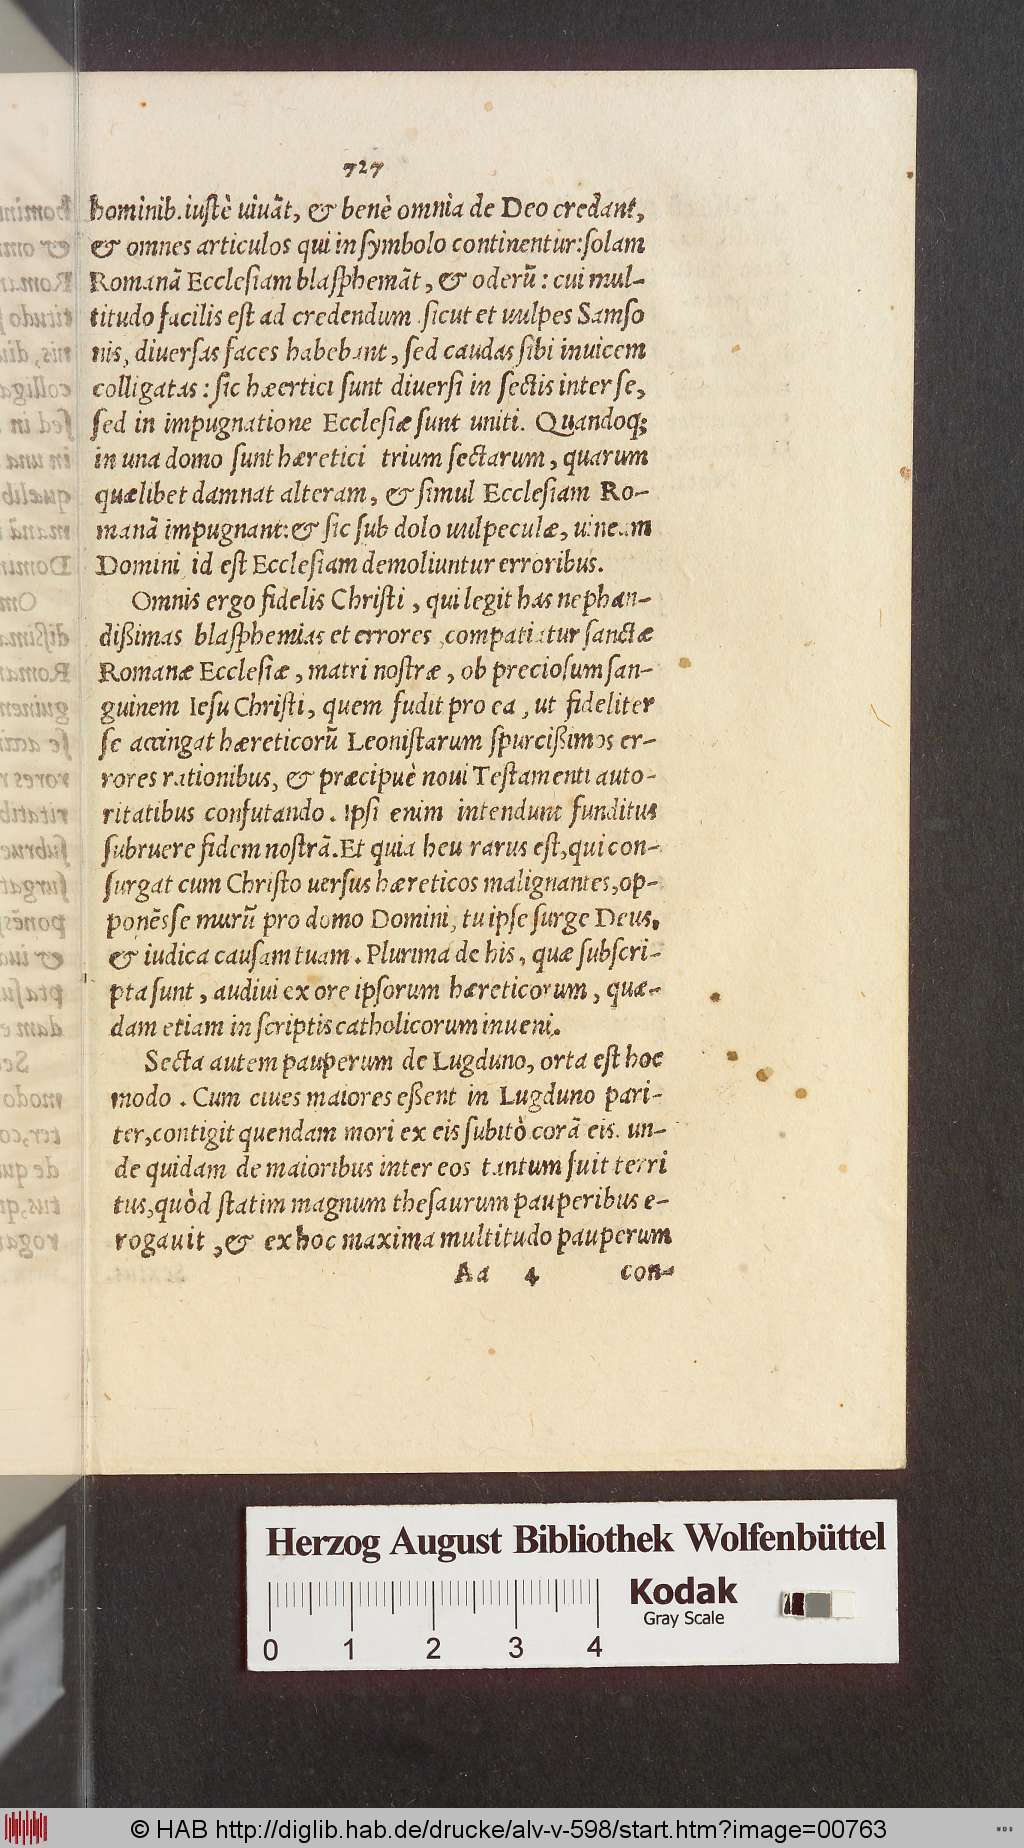 727
hominib. iustè uiuãt, & benè omnia de Deo credant,
& omnes articulos qui in symbolo continentur: solam
Romanã Ecclesiam blasphemãt, & oderũ: cui mul-
titudo facilis est ad credendum sicut et uulpes Samso
nis, diuersas faces habebant, sed caudas sibi inuicem
colligatas: sic hæertici sunt diuersi in sectis inter se,
sed in impugnatione Ecclesiæ sunt uniti. Quandoq;
in una domo sunt hæretici trium sectarum, quarum
quælibet damnat alteram, & simul Ecclesiam Ro-
manã impugnant: & sic sub dolo uulpeculæ, uineam
Domini id est Ecclesiam demoliuntur erroribus.
Omnis ergo fidelis Christi, qui legit has nephan-
dißimas blasphemias et errores, compatiatur sanctæ
Romanæ Ecclesiæ, matri nostræ, ob preciosum san-
guinem Iesu Christi, quem fudit pro ea, ut fideliter
se accingat hæreticorũ Leonistarum spurcißimos er-
rores rationibus, & præcipuè noui Testamenti auto-
ritatibus confutando. Ipsi enim intendunt funditus
subruere fidem nostrã. Et quia heu rarus est, qui con-
surgat cum Christo uersus hæreticos malignantes, op-
ponẽs se murũ pro domo Domini, tu ipse surge Deus,
& iudica causam tuam. Plurima de his, quæ subscri-
pta sunt, audiui ex ore ipsorum hæreticorum, quæ-
dam etiam in scriptis catholicorum inueni.
Secta autem pauperum de Lugduno, orta est hoc
modo. Cum ciues maiores eßent in Lugduno pari-
ter, contigit quendam mori ex eis subitò corã eis. un-
de quidam de maioribus inter eos tantum fuit terri
tus, quòd statim magnum thesaurum pauperibus e-
rogauit, & ex hoc maxima multitudo pauperum
Aa 4 con-
Herzog August Bibliothek Wolfenbüttel
Kodak
Gray Scale
0 1 2 3 4
© HAB http://diglib.hab.de/drucke/alv-v-598/start.htm?image=00763